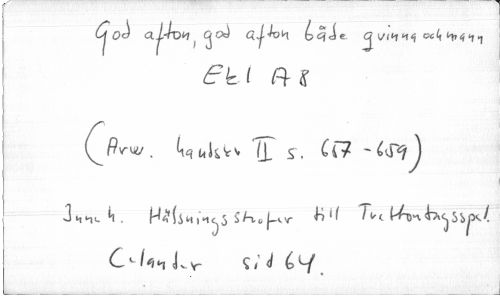 God afton, god afton både qvinna och mann
Ekl A 8
(Arw. handskr II s. 657-659)
Inneh. Hälsningsstrofer till Trettondagsspel.
Celander sid 64.